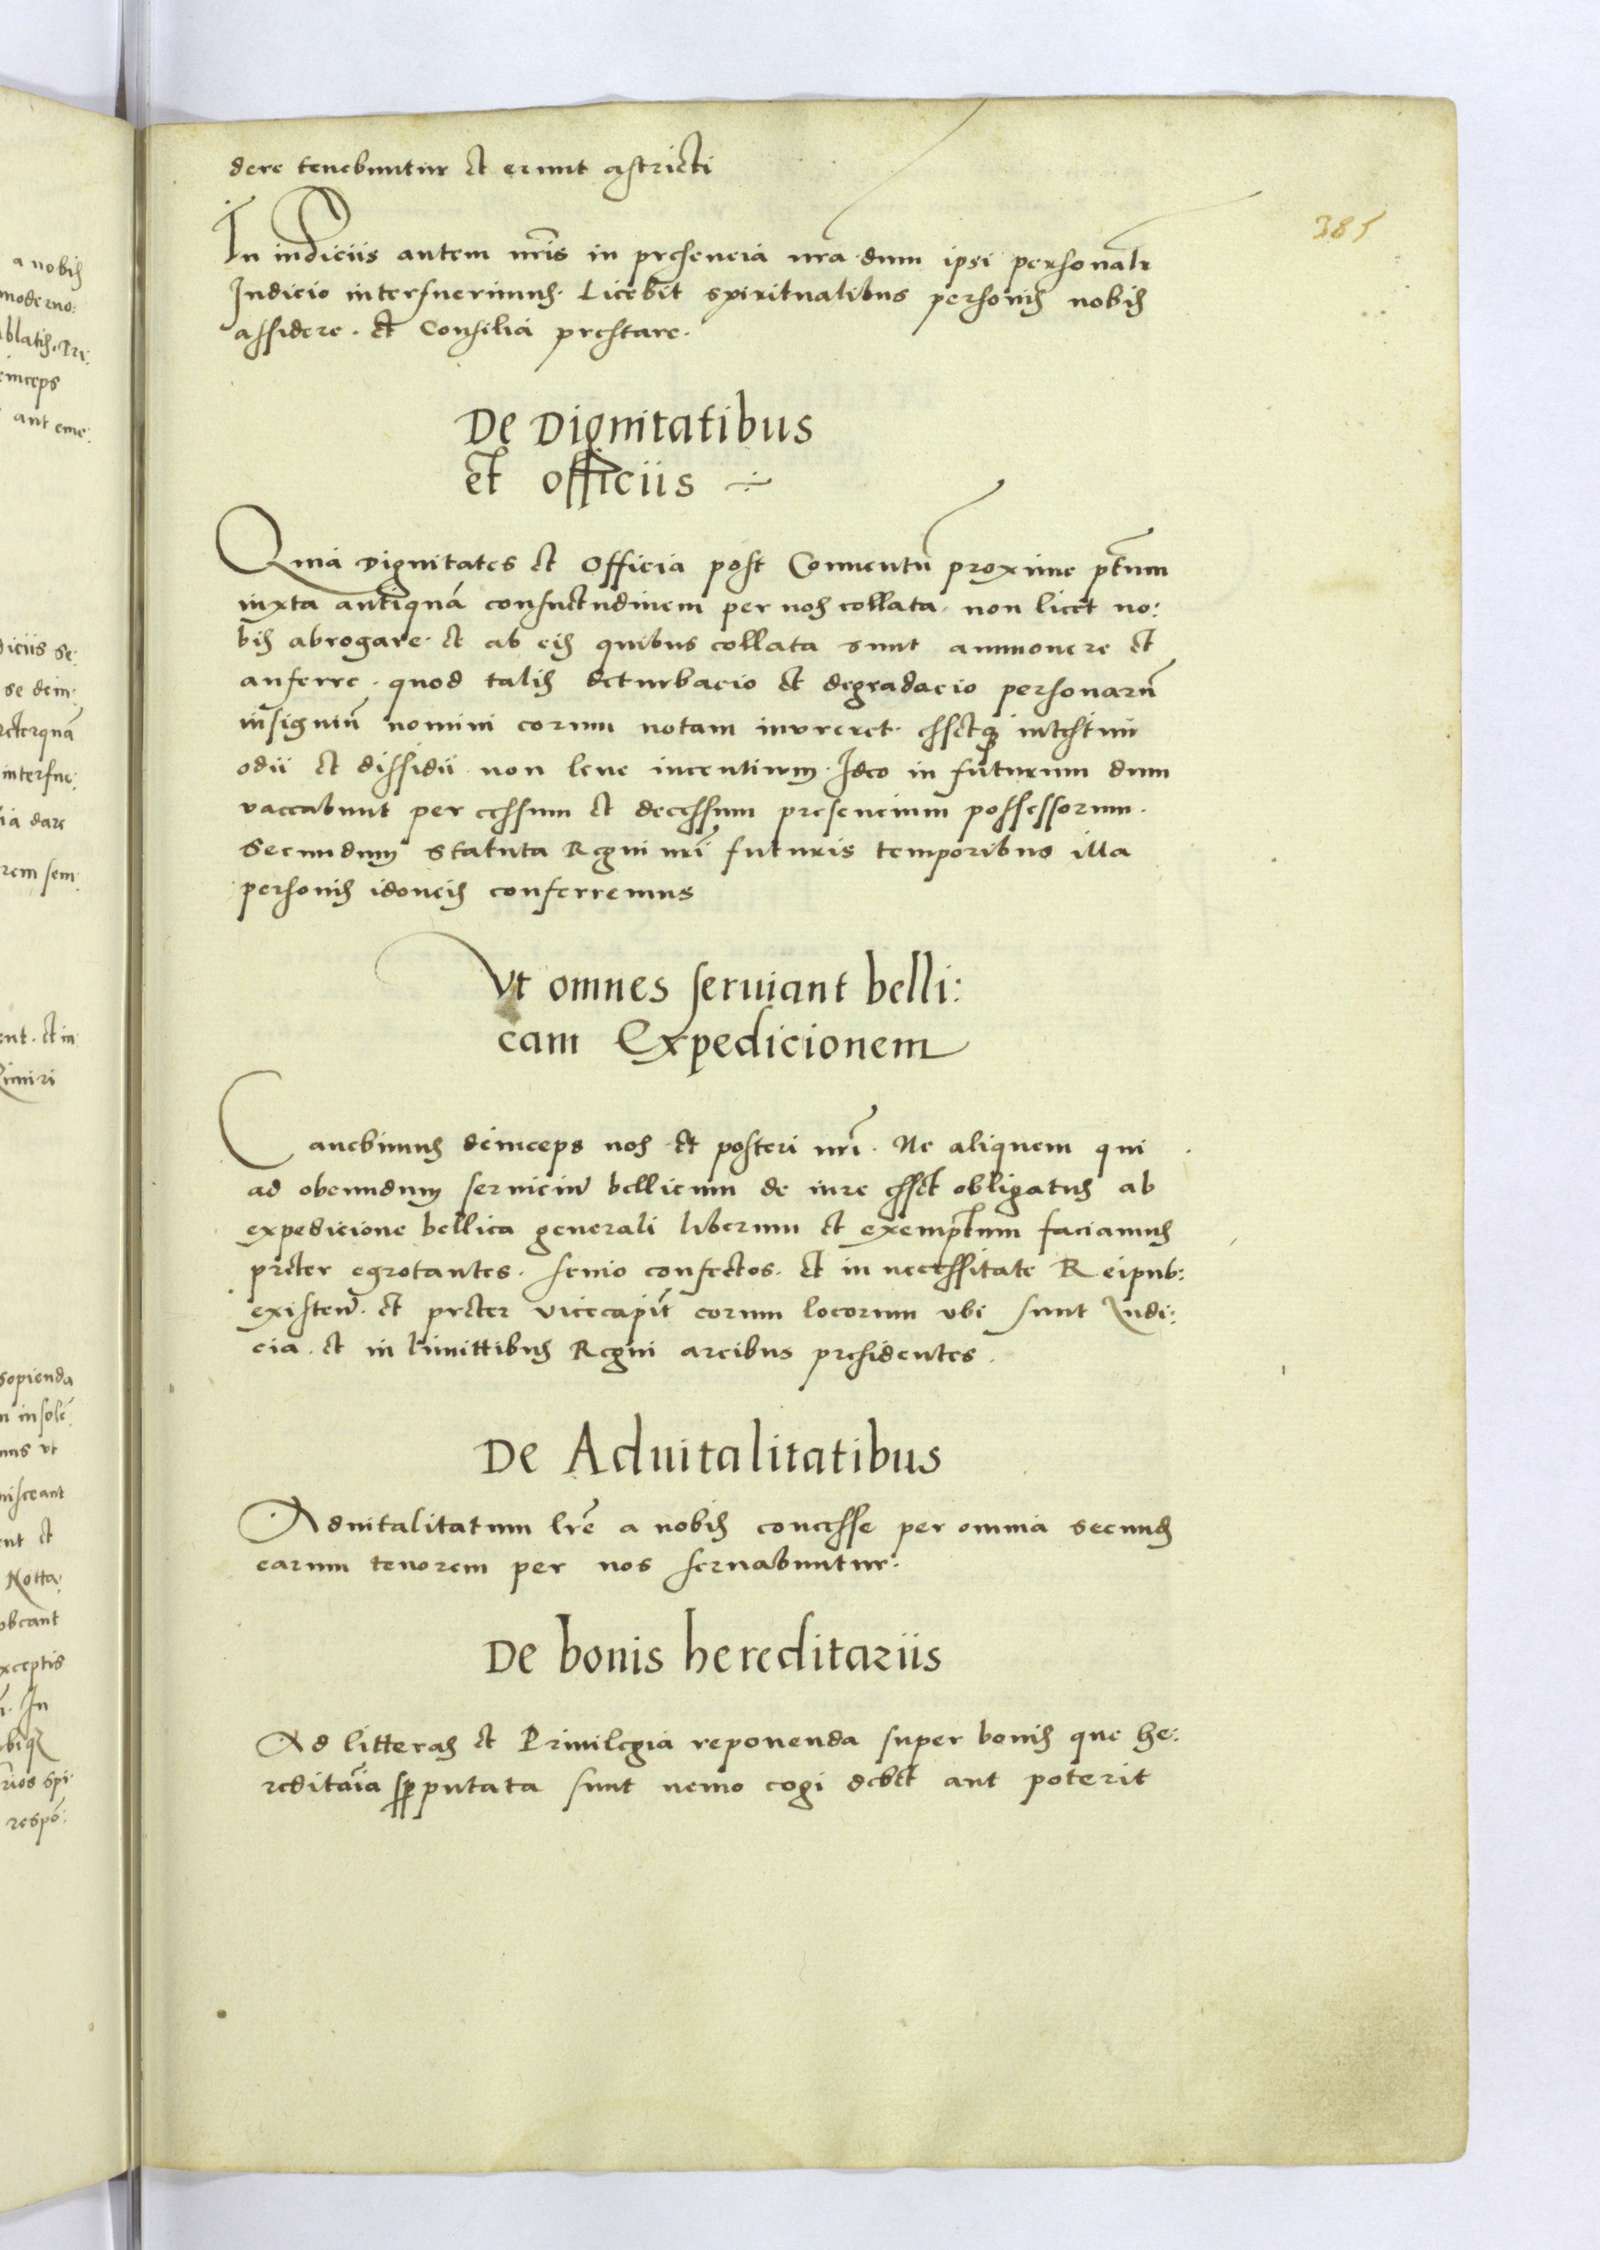 dere tenebuntur et erunt astricti
385
In iudiciis autem nr̃is in presencia nr̃a dum ipsi personalr
Iudicio interfuerimus. Licebit spiritualibus personis nobis
assidere. et Consilia prestare.
De Dignitatibus
et officiis ÷
Quia Dignitates et Officia post Conuentũ proxime pt̃um
iuxta antiquã consuetudinem per nos collata. non licet no:
bis abrogare. et ab eis quibus collata sunt ammouere et
auferre. quod talis deturbacio et degradacio personarũ
insigniũ nomini eorum notam inureret. essetq intestini
odii et dissidii non leue incentiuum. Ideo in futurum dum
vaccabunt per cessum et decessum presencium possessorum.
Secundum statuta Regni nr̃i futuris temporibus illa
personis idoneis conferremus
Vt omnes seruiant belli:
cam Expedicionem
Cauebimus deinceps nos et posteri nr̃i. Ne aliquem qui
ad obeundum seruiciũ bellicum de iure esset obligatus ab
expedicione bellica generali liberum et exemptum faciamus
preter egrotantes. senio confectos. et in necessitate Reipub:
existeñ. et preter vicecapit̃ eorum locorum vbi sunt Iudi:
cia. et in limittibus Regni arcibus presidentes.
De Aduitalitatibus
Aduitalitatum lr̃e a nobis concesse per omnia secund
earum tenorem per nos seruabuntur.
De bonis hereditariis
Ad litteras et Priuilegia reponenda super bonis que he:
reditaria putata sunt nemo cogi debet aut poterit
a nobis
moderno:
ablatis. Pri:
einceps
aut eme:
diciis se:
se dein:
reterquã
interfue:
ia dare
rem sem:
ent. et in
sopienda
n insole:
mus vt
nisceant
nt et
Notta:
obeant
xceptis
In
rios spi:
respõ: